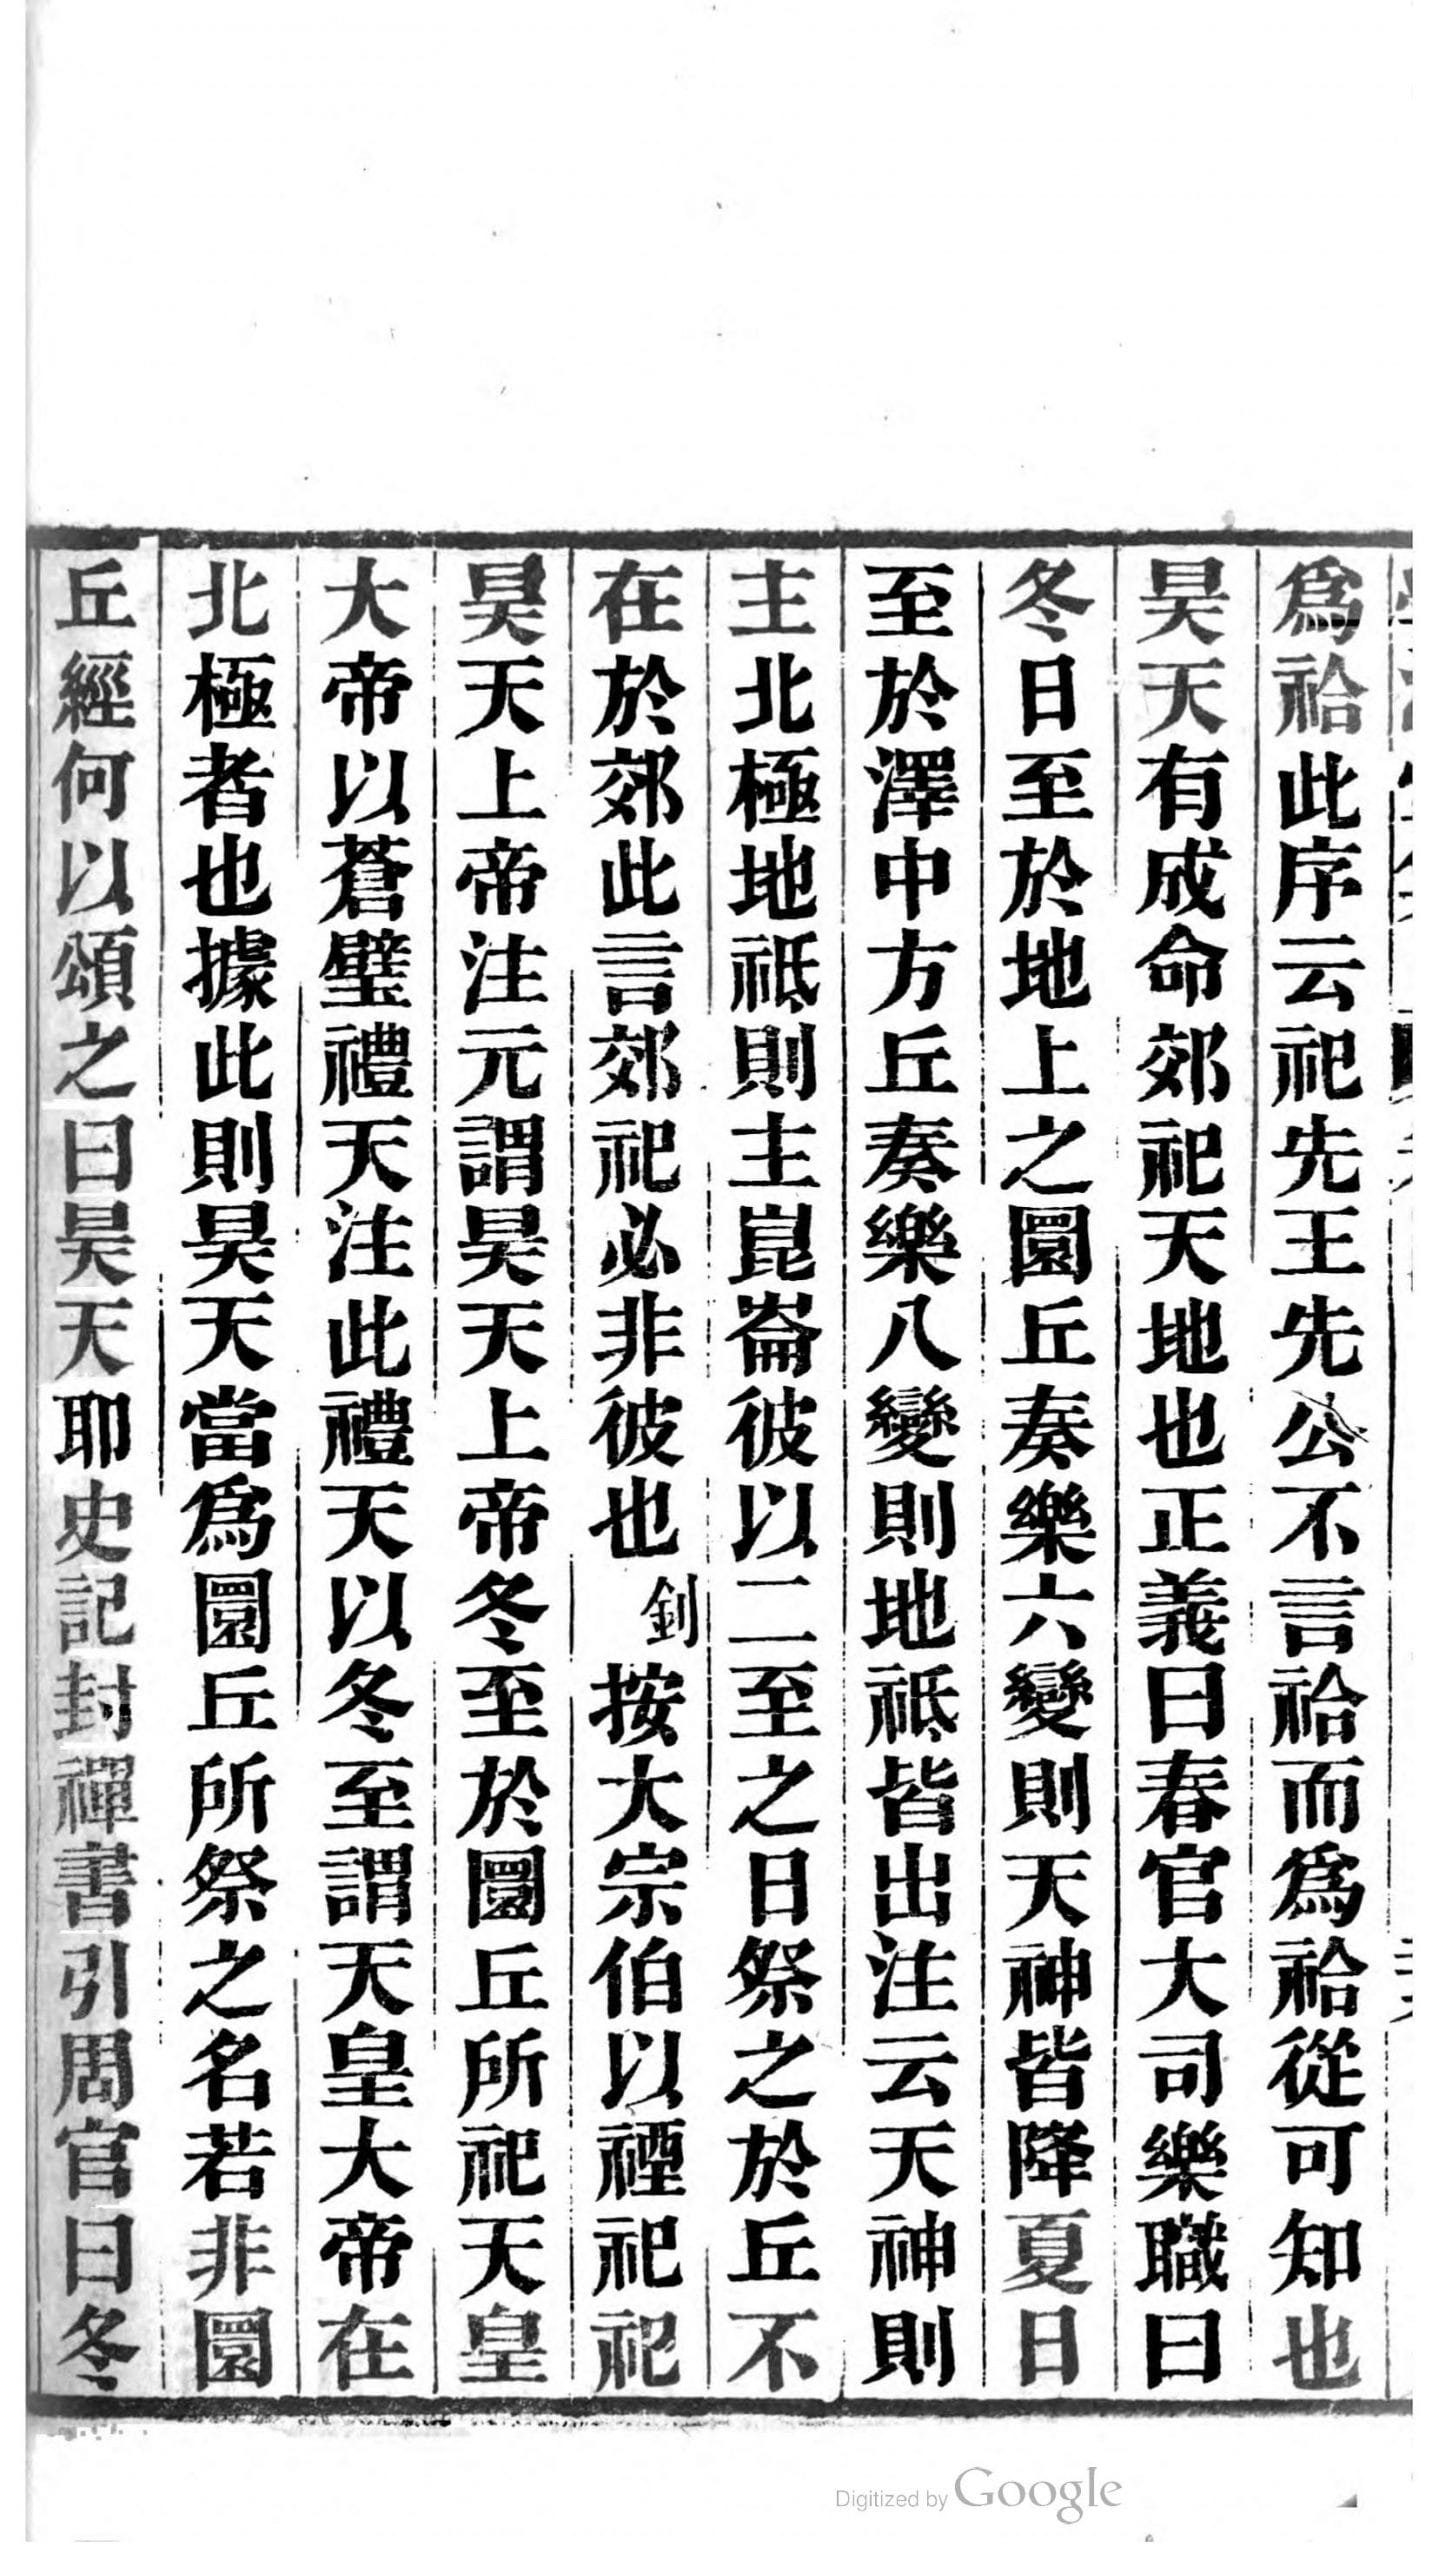 爲祫此序云祀先王先公不言祫而爲祫從可知也
昊天有成命郊祀天地也正義曰春官大司樂職曰
冬日至於地上之圜丘奏樂六變則天神皆降夏日
至於澤中方丘奏樂八變則地祗皆出注云天神則
主北極地祗則主崑崙彼以二至之日祭之於丘不
在於郊此言郊祀必非彼也釗按大宗伯以禋祀祀
昊天上帝注元謂昊天上帝冬至於圜丘所祀天皇
大帝以蒼璧禮天注此禮天以冬至謂天皇大帝在
北極者也據此則昊天當爲圜丘所祭之名若非圜
丘經何以頌之曰昊天耶史記封禪書引周官曰冬
Digitized by Google